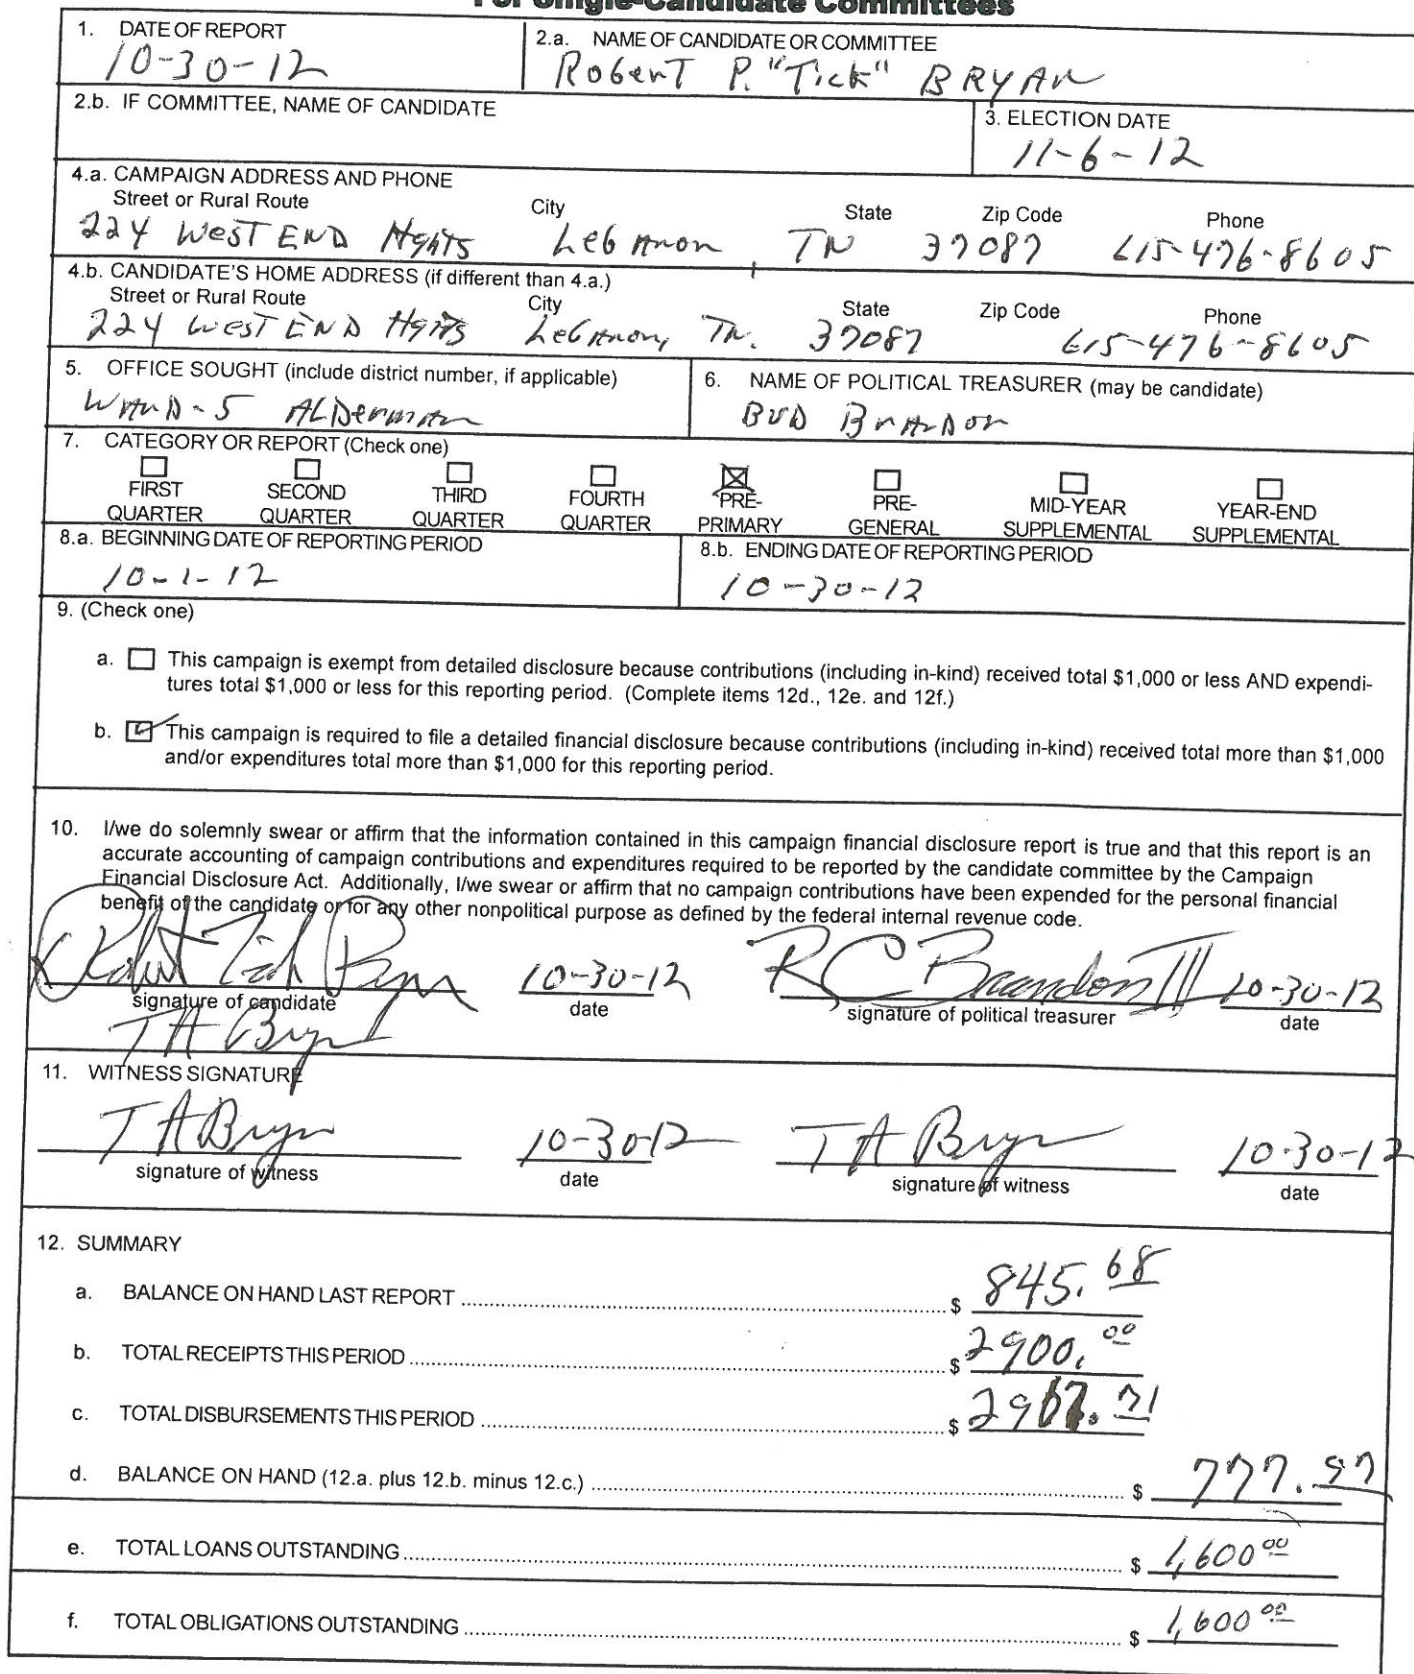 For Single-Candidate Committees
1. DATE OF REPORT
10-30-12
2.a. NAME OF CANDIDATE OR COMMITTEE
Robert P. "Tick" BRYAN
2.b. IF COMMITTEE, NAME OF CANDIDATE
3. ELECTION DATE
11-6-12
4.a. CAMPAIGN ADDRESS AND PHONE
Street or Rural Route City State Zip Code Phone
224 WEST END Hghts Lebanon, TN 37087 615-476-8605
4.b. CANDIDATE'S HOME ADDRESS (if different than 4.a.)
Street or Rural Route City State Zip Code Phone
224 WEST END Hghts Lebanon, TN. 37087 615-476-8605
5. OFFICE SOUGHT (include district number, if applicable)
WARD-5 ALDerman
6. NAME OF POLITICAL TREASURER (may be candidate)
BUD BrAnDon
7. CATEGORY OR REPORT (Check one)
FIRST QUARTER
SECOND QUARTER
THIRD QUARTER
FOURTH QUARTER
PRE-PRIMARY
PRE-GENERAL
MID-YEAR SUPPLEMENTAL
YEAR-END SUPPLEMENTAL
8.a. BEGINNING DATE OF REPORTING PERIOD
10-1-12
8.b. ENDING DATE OF REPORTING PERIOD
10-30-12
9. (Check one)
a. This campaign is exempt from detailed disclosure because contributions (including in-kind) received total $1,000 or less AND expendi-
tures total $1,000 or less for this reporting period. (Complete items 12d., 12e. and 12f.)
b. This campaign is required to file a detailed financial disclosure because contributions (including in-kind) received total more than $1,000
and/or expenditures total more than $1,000 for this reporting period.
10. I/we do solemnly swear or affirm that the information contained in this campaign financial disclosure report is true and that this report is an
accurate accounting of campaign contributions and expenditures required to be reported by the candidate committee by the Campaign
Financial Disclosure Act. Additionally, I/we swear or affirm that no campaign contributions have been expended for the personal financial
benefit of the candidate or for any other nonpolitical purpose as defined by the federal internal revenue code.
Robert Tick Bryan 10-30-12 RC Brandon III 10-30-12
signature of candidate date signature of political treasurer date
TA Bryan
11. WITNESS SIGNATURE
TA Bryan 10-30-12 TA Bryan 10-30-12
signature of witness date signature of witness date
12. SUMMARY
a. BALANCE ON HAND LAST REPORT $ 845.68
b. TOTAL RECEIPTS THIS PERIOD $ 2900.00
c. TOTAL DISBURSEMENTS THIS PERIOD $ 2967.71
d. BALANCE ON HAND (12.a. plus 12.b. minus 12.c.) $ 777.97
e. TOTAL LOANS OUTSTANDING $ 1,600.00
f. TOTAL OBLIGATIONS OUTSTANDING $ 1,600.00